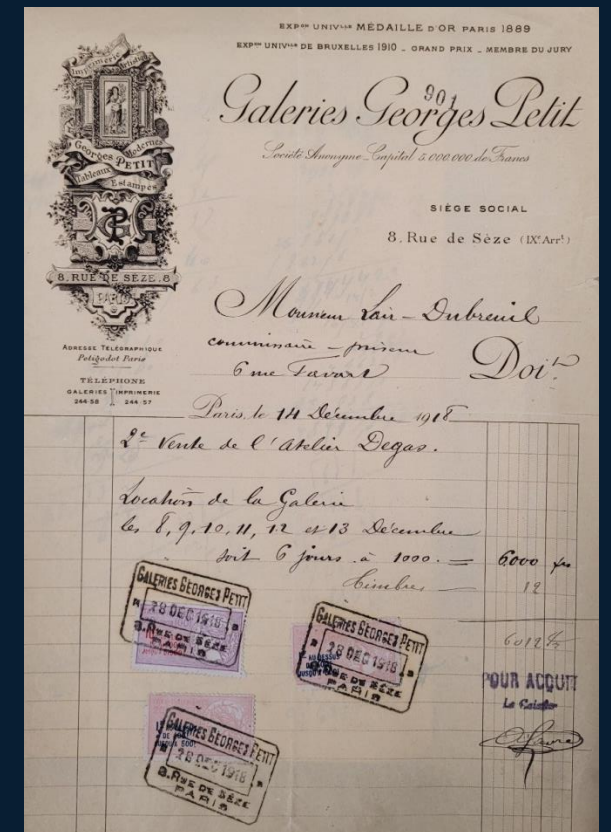 EXPᵒⁿ UNIVˡˡᵉ MÉDAILLE D'OR PARIS 1889
EXPᵒⁿ UNIVˡˡᵉ DE BRUXELLES 1910 _ GRAND PRIX _ MEMBRE DU JURY
901
Galeries Georges Petit
Société Anonyme _ Capital 5.000.000 de Francs
SIÈGE SOCIAL
8, Rue de Sèze (IXᵉ Arrᵗ)
Imprimerie Artistique
Georges PETIT
Tableaux Modernes
Estampes
GP
8, RUE DE SÈZE, 8
PARIS
ADRESSE TÉLÉGRAPHIQUE
Petigodot Paris
TÉLÉPHONE
GALERIES IMPRIMERIE
244-58 244-57
Monsieur Lair-Dubreuil
commissaire-priseur
6 rue Favart
Doit
Paris, le 14 Décembre 1918
2ᵉ Vente de l'Atelier Degas.
Location de la Galerie
les 8, 9, 10, 11, 12 et 13 Décembre
soit 6 jours à 1000. = 6.000 frs
Timbres — 12
6012
GALERIES GEORGES PETIT
28 DEC 1918
8, RUE DE SÈZE
PARIS
GALERIES GEORGES PETIT
28 DEC 1918
8, RUE DE SÈZE
PARIS
GALERIES GEORGES PETIT
28 DEC 1918
8, RUE DE SÈZE
PARIS
POUR ACQUIT
Le Caissier